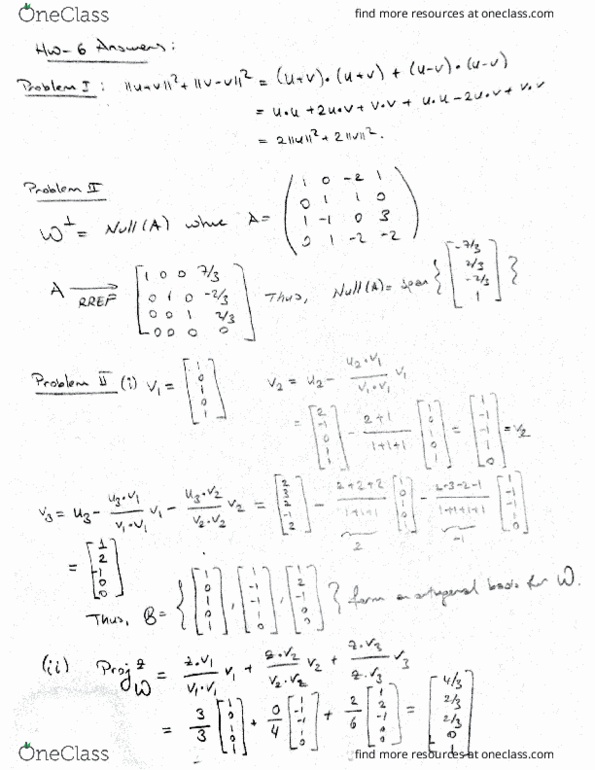 OneClass
find more resources at oneclass.com
HW-6 Answers:
Problem I: ||u+v||² + ||v-v||² = (u+v)•(u+v) + (u-v)•(u-v)
= u•u + 2u•v + v•v + u•u - 2u•v + v•v
= 2||u||² + 2||v||².
Problem II
W⊥ = Null(A) where A = (1 0 -2 1
0 1 1 0
1 -1 0 3
0 1 -2 -2)
A → RREF [1 0 0 7/3
0 1 0 -2/3
0 0 1 2/3
0 0 0 0] Thus, Null(A) = span {[-7/3 2/3 -2/3 1]}
Problem II (i) v₁ = [1 0 1 0 1] v₂ = u₂ - u₂•v₁/v₁•v₁ v₁
= [2 -1 0 1 1] - 2+1/1+1+1 [1 0 1 0 1] = [1 -1 -1 1 0] = v₂
v₃ = u₃ - u₃•v₁/v₁•v₁ v₁ - u₃•v₂/v₂•v₂ v₂ = [2 3 2 -1 2] - 2+2+2/1+1+1 [1 0 1 0 1] - 2-3-2-1/1+1+1+1 [1 -1 -1 1 0]
2 -1
= [1 2 -1 0 0]
Thus, B = {[1 0 1 0 1], [1 -1 -1 1 0], [1 2 -1 0 0]} form an ortogonal basis for W.
(ii) Proj z W = z•v₁/v₁•v₁ v₁ + z•v₂/v₂•v₂ v₂ + z•v₃/z•v₃ v₃
= 3/3 [1 0 1 0 1] + 0/4 [1 -1 -1 1 0] + 2/6 [1 2 -1 0 0] = [4/3 2/3 2/3 0 1]
OneClass
find more resources at oneclass.com